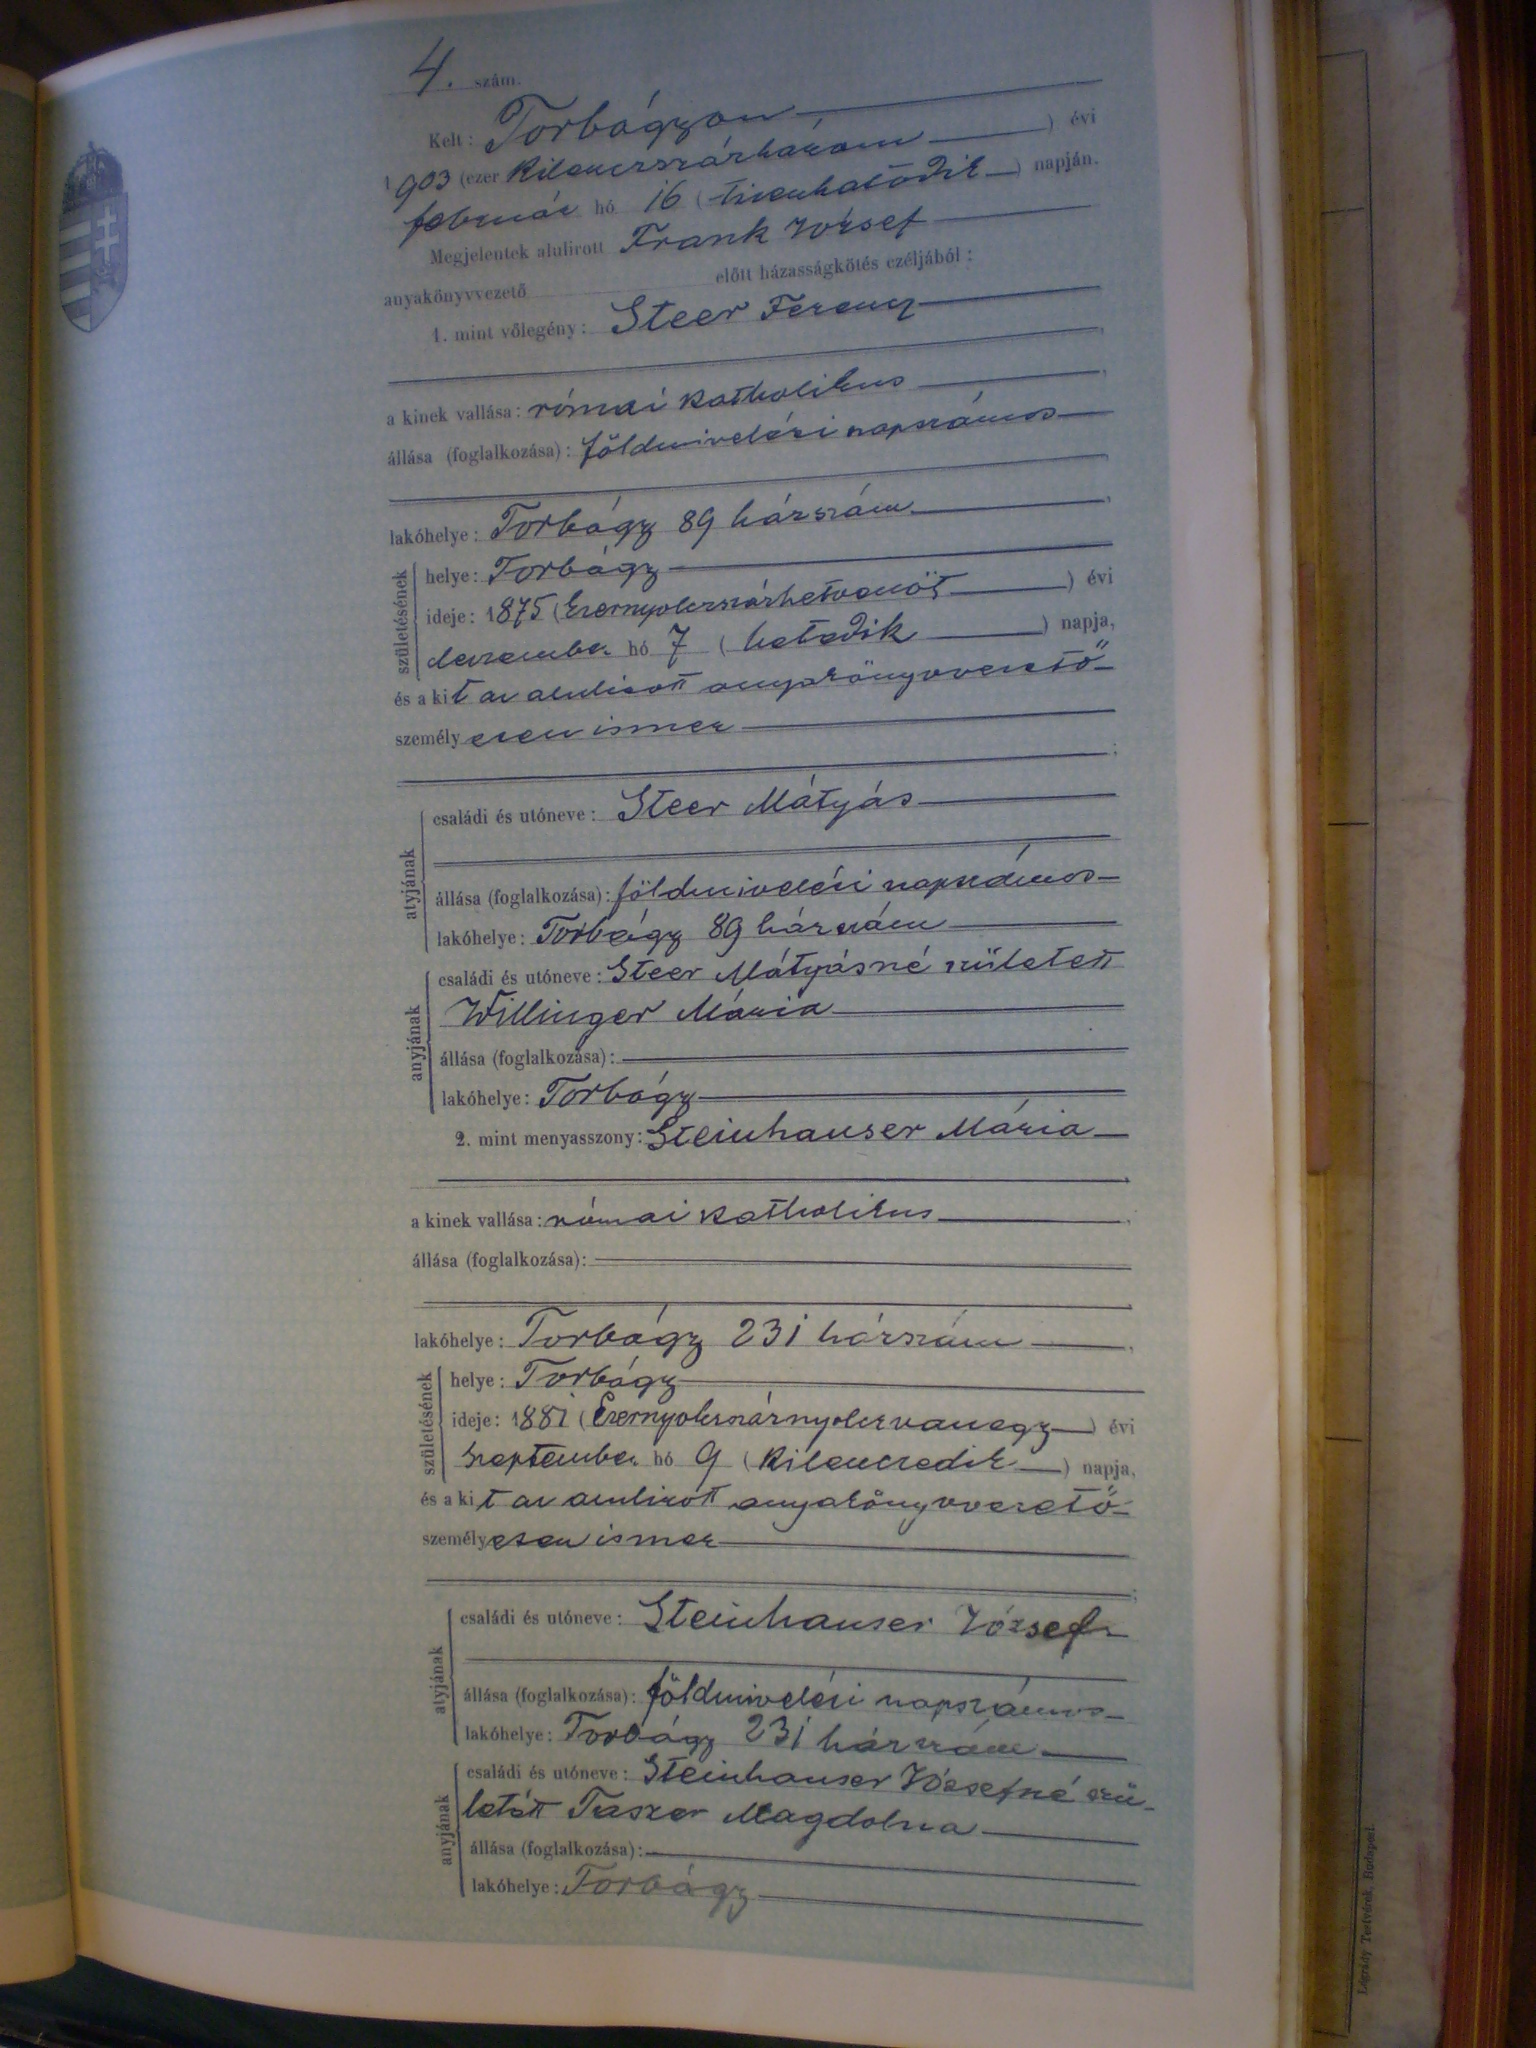 4. szám.
Kelt: Torbágyon
1903 (ezer kilenczszázhárom) évi
február hó 16 (tizenhatodik) napján.
Megjelentek alulirott Frank József
anyakönyvvezető előtt házasságkötés czéljából:
1. mint vőlegény: Steer Ferencz
a kinek vallása: római katholikus
állása (foglalkozása): földmivelési napszámos
lakóhelye: Torbágy 89 házszám
születésének
helye: Torbágy
ideje: 1875 (Ezernyolczszázhetvenöt) évi
deczember hó 7 (hetedik) napja,
és a kit az alulirott anyakönyvvezető
személyesen ismer
atyjának
családi és utóneve: Steer Mátyás
állása (foglalkozása): földmivelési napszámos
lakóhelye: Torbágy 89 házszám
anyjának
családi és utóneve: Steer Mátyásné született
Willinger Mária
állása (foglalkozása):
lakóhelye: Torbágy
2. mint menyasszony: Steinhauser Mária
a kinek vallása: római katholikus
állása (foglalkozása):
lakóhelye: Torbágy 231 házszám
születésének
helye: Torbágy
ideje: 1881 (Ezernyolczszáznyolczvanegy) évi
szeptember hó 9 (kilenczedik) napja,
és a kit az alulirott anyakönyvvezető
személyesen ismer
atyjának
családi és utóneve: Steinhauser József
állása (foglalkozása): földmivelési napszámos
lakóhelye: Torbágy 231 házszám
anyjának
családi és utóneve: Steinhauser Józsefné szü-
letett Magdolna
állása (foglalkozása):
lakóhelye: Torbágy
Légrády Testvérek, Budapest.